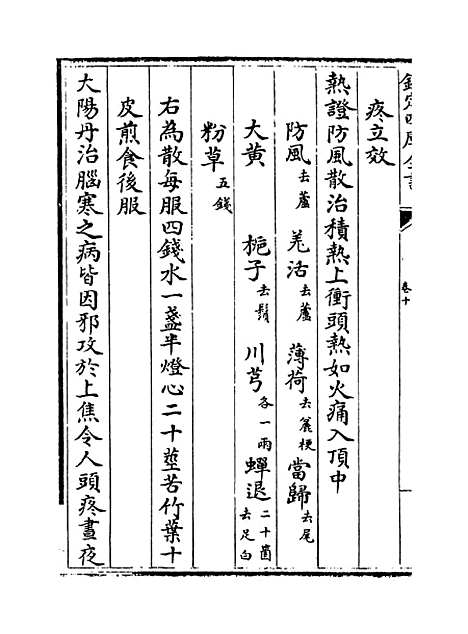 欽定四庫全書
卷十
疼立效
熱證防風散治積熱上衝頭熱如火痛入頂中
防風去蘆 羌活去蘆 薄荷去麄梗 當歸去尾
大黄 梔子去鬚 川芎各一兩 蟬退二十箇去足白
粉草五錢
右為散每服四錢水一盞半燈心二十莖苦竹葉十
皮煎食後服
大陽丹治腦寒之病皆因邪攻於上焦令人頭疼晝夜